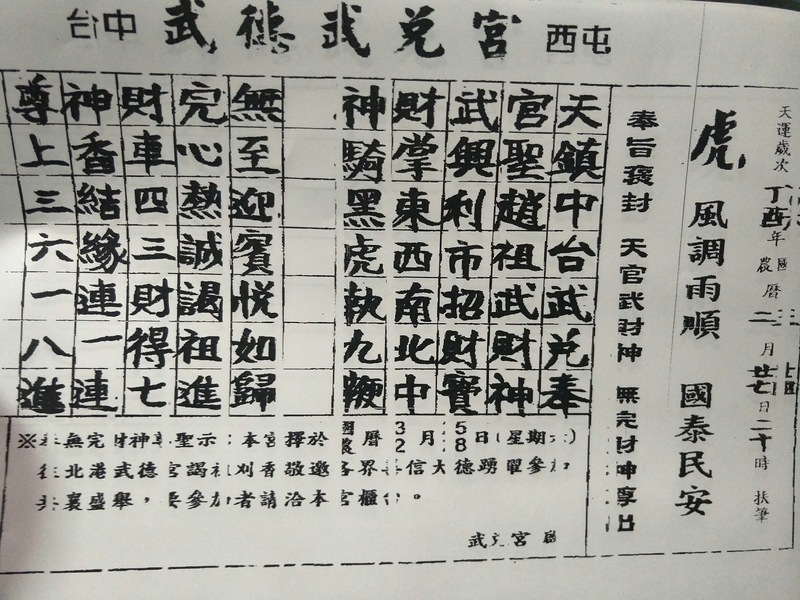 台中 武德武兌宮 西屯
天運歲次丁酉年農曆二月廿七日二十時 扶筆
虎 風調雨順 國泰民安
奉旨褒封 天官武財神 無完財神尊出
天鎮中台武兌奉
官聖趙祖武財神
武興利市招財寶
財掌東西南北中
神騎黑虎執九鞭
無至迎賓悅如歸
完心熱誠謁祖進
財車四三財得七
神香結緣連一連
尊上三六一八進
※無完財神尊聖示：本宮擇於國農曆3/2月5/8日(星期六)
往北港武德宮謁祖刈香敬邀各界善信大德踴躍參加
共襄盛舉，要參加者請洽本宮櫃台。
武兌宮 啟